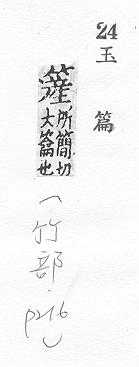 24
玉篇
簅 所簡切
大籥也
(竹部・p216)